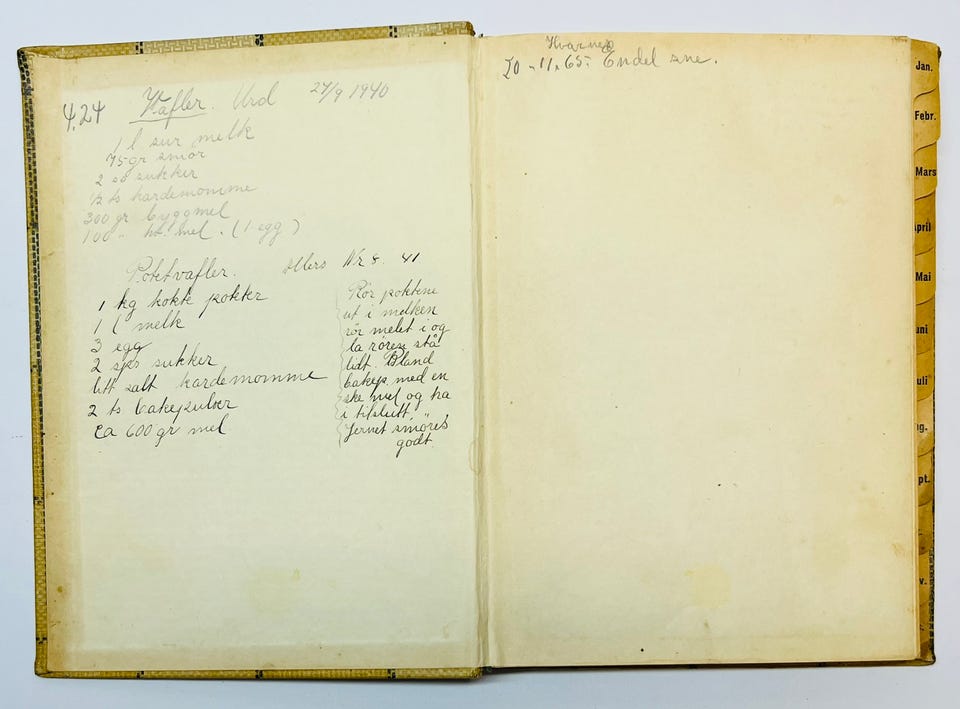 4.24 Vafler. Urd 27/9 1940
1 l sur melk
75 gr smør
2 ss sukker
½ ts kardemomme
300 gr byggmel
100 " hv. mel. (1 egg)
Potetvafler. Allers Nr 8. 41
1 kg kokte poteter
1 l melk
3 egg
2 sps sukker
litt salt kardemomme
2 ts bakepulver
ca 600 gr mel
Rør potetene
ut i melken
rør melet i og
la røren stå
lidt. Bland
bakep. med en
ske mel og ha
i tilslutt.
Jernet smøres
godt.
20 - 11. 65. Endel sne.
Jan.
Febr.
Mars
April
Mai
uni
uli
ug.
pt.
v.